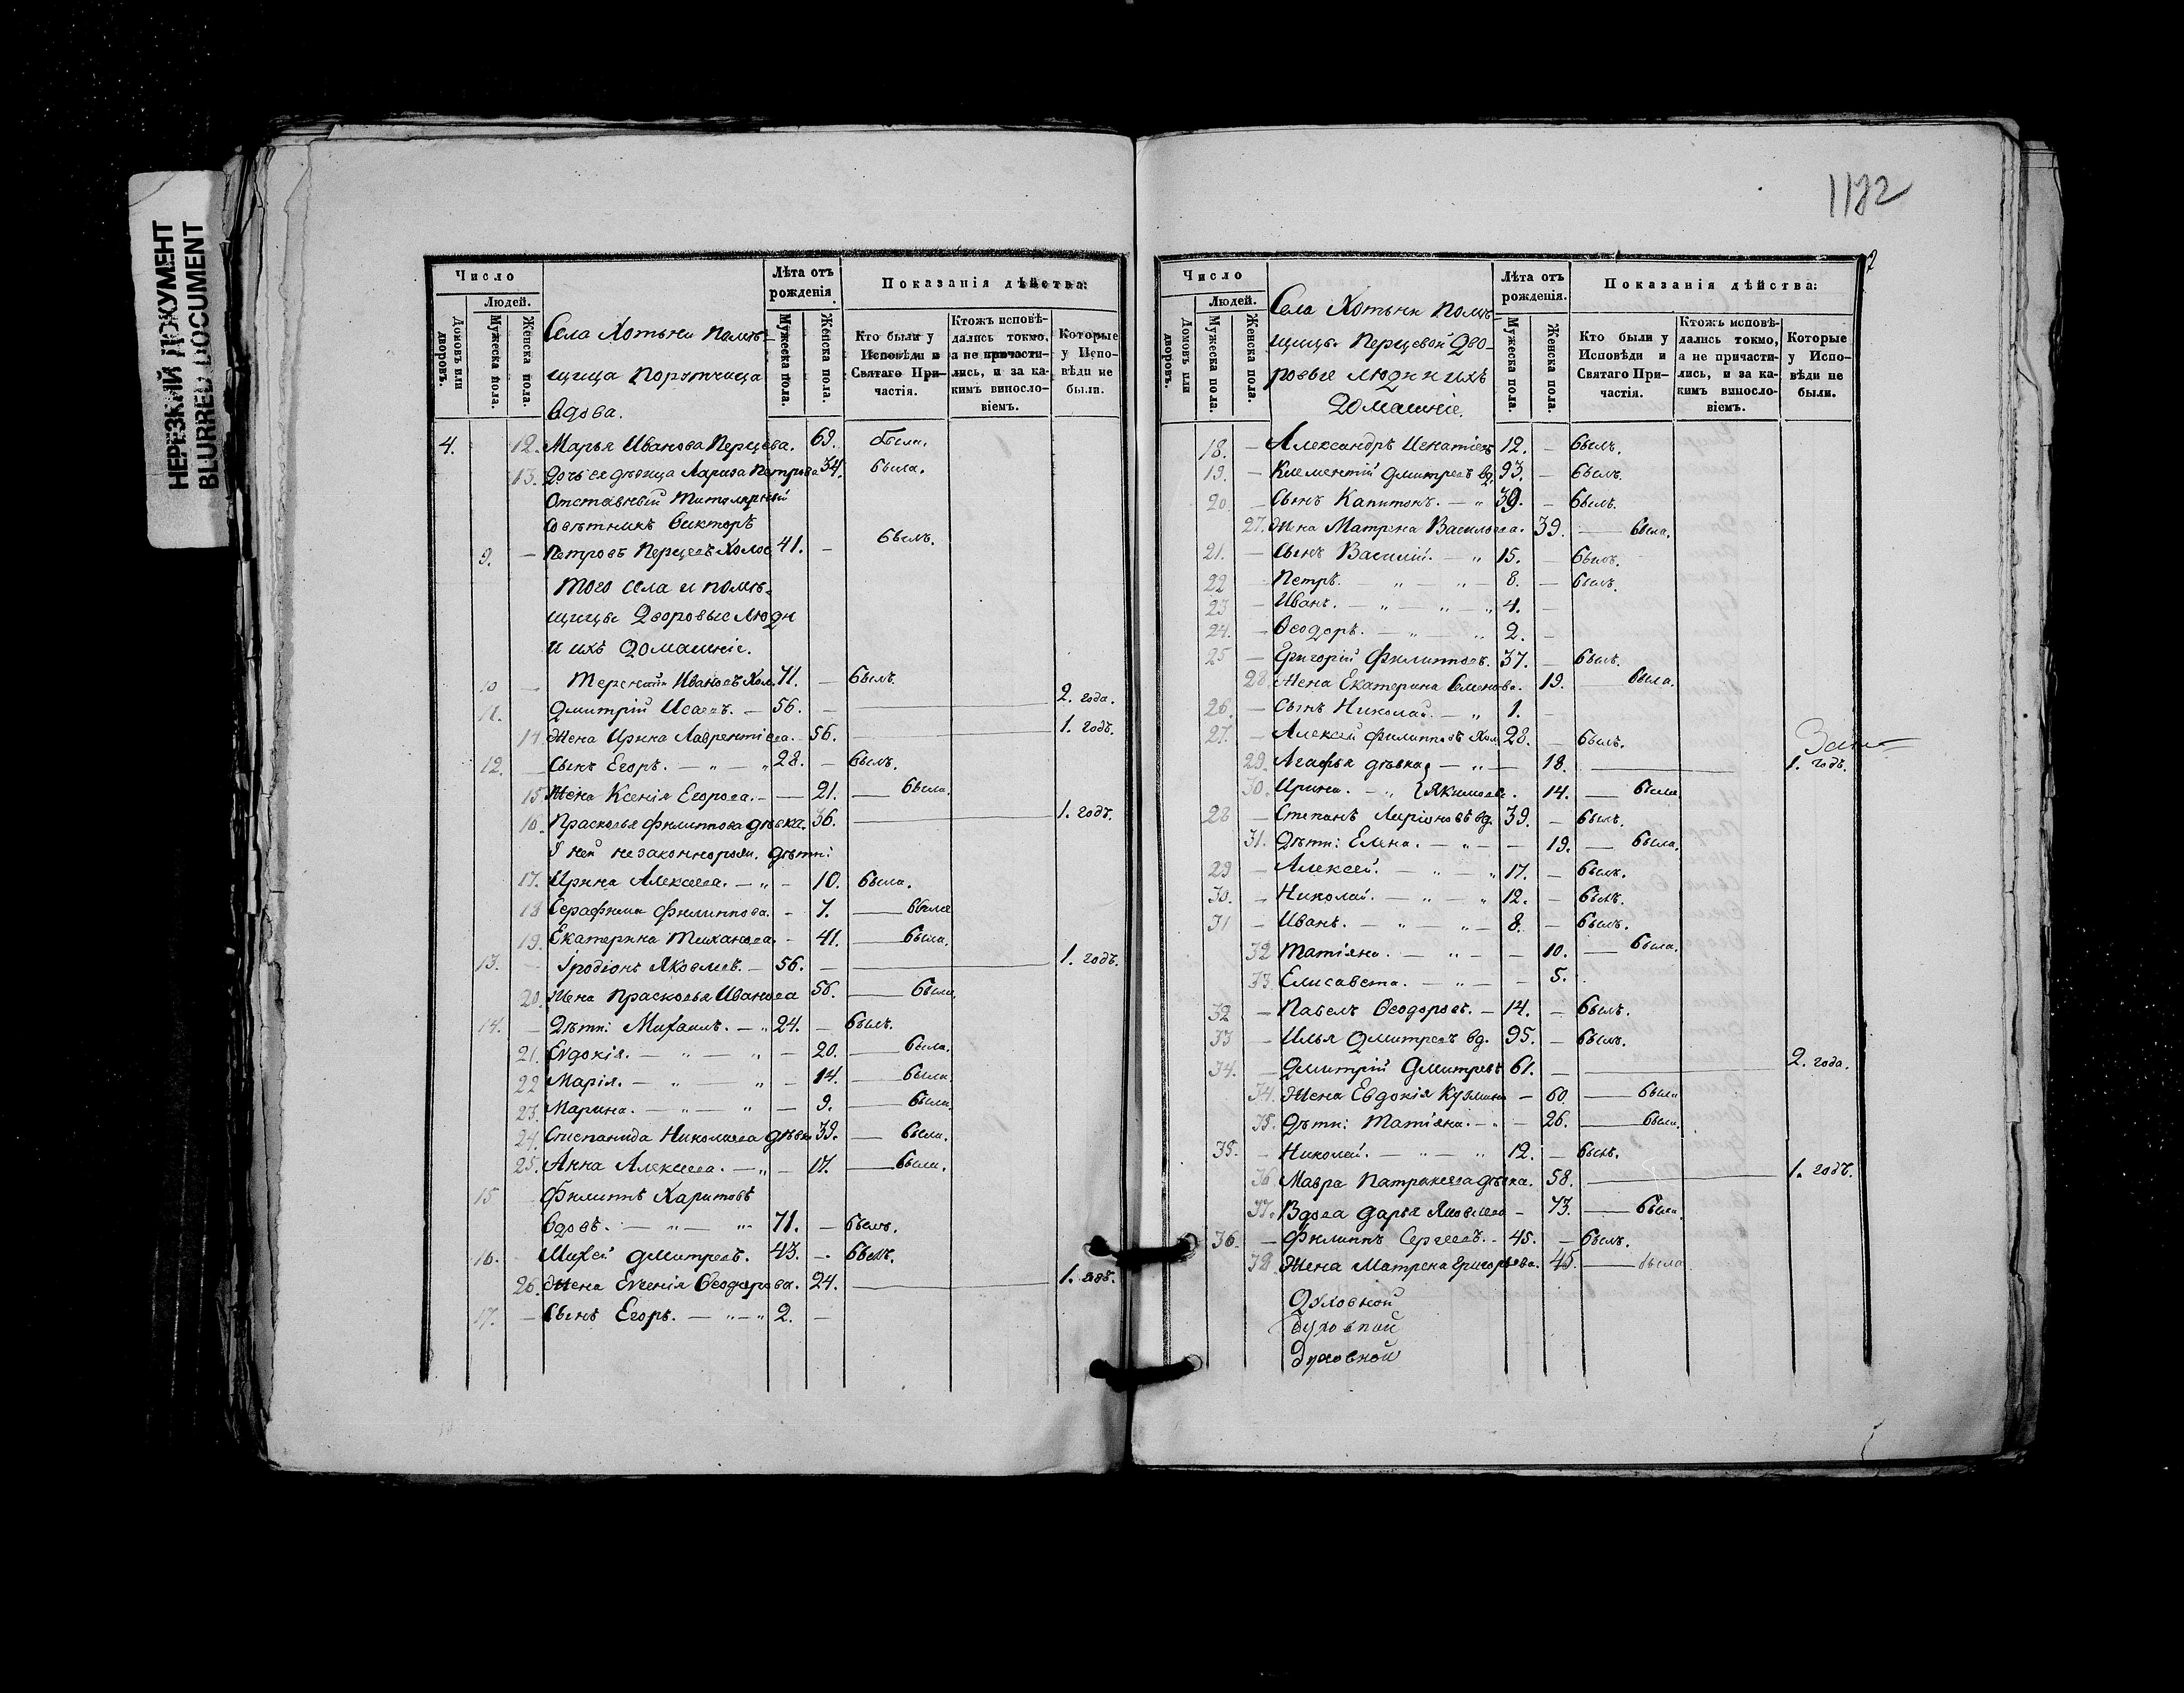 НЕРЕЗКИЙ ДОКУМЕНТ
BLURRED DOCUMENT
Число
Людей.
Домовъ или дворовъ.
Мужеска пола.
Женска пола.
Села Хотыни помѣ-
щица Порутчица
вдова.
Лѣта отъ рожденія
Мужеска пола.
Женска пола.
Показанія дѣйства:
Кто были у Исповѣди и Святаго При-частія.
Ктожъ исповѣ-дались токмо, а не причасти-лись, и за ка-кимъ виносло-віемъ.
Которые у Испо-вѣди не были.
4. 12. Марья Иванова Перцева. 69. была.
13. Дочь ея дѣвица Лариса Петрова 34. была.
Отставный Титулярный
Совѣтникъ Викторъ
9. — Петровъ Перцевъ Холос 41. — былъ.
Того села и помѣ-
щицы Дворовые люди
и ихъ домашніе.
10 — Терентій Ивановъ Хол. 71. — былъ.
11. Дмитрій Исаевъ. — 56. — 2. года.
14 Жена Ирина Лаврентіева. 56. — 1. годъ.
12. — Сынъ Егоръ. — „ — „ 28. — былъ.
15 Жена Ксенія Егорова. — — 21. — была.
16. Прасковья Филиппова дѣвка. 36. — 1. годъ.
У ней незаконнорож. дѣти:
17. Ирина Алексеева. — „ — 10. была.
18 Серафима Филиппова. - 7. — была
19. Екатерина - 41. — была.
13. — Іродіонъ Яковлевъ. — 56. — 1. годъ.
20. Жена Прасковья Иванова 56. — была.
14. — Дѣти: Михаилъ. — „ 24. — былъ.
21. Евдокія. — „ — „ — 20. — была.
22 Марія. — „ „ — 14. — была.
23. Марина. — „ — „ — 9. — была.
24. Степанида Николаева дѣвка 39. — была.
25. Анна Алексеева. — „ — 17. — была.
15 Филиппъ Харитовъ
вдовъ. — „ — „ 71. — былъ.
16. — Михей Дмитревъ. 43. — былъ.
26. Жена Евгенія Ѳеодорова. 24. — 1. годъ.
17. — Сынъ Егоръ. — „ — „ 2. —
1172
2
Число
Людей.
Домовъ или дворовъ.
Мужеска пола.
Женска пола.
Села Хотыни помѣ
щицы Перцевой Дво-
ровые люди и ихъ
домашніе.
Лѣта отъ рожденія.
Мужеска пола.
Женска пола.
Показанія дѣйства:
Кто были у Исповѣди и Святаго При-частія.
Ктожъ исповѣ-дались токмо, а не причасти-лись, и за ка-кимъ виносло-віемъ.
Которые у Испо-вѣди не были.
18. — Александръ Игнатіевъ 12. — былъ.
19. — Климентій Дмитревъ вд. 93. — былъ.
20. Сынъ Капитонъ. — „ 39. — былъ.
27. Жена Матрена Васильева. 39. — была.
21. — Сынъ Василій. — „ 15. — былъ.
22 Петръ. — „ — „ — 8. — былъ.
23 — Иванъ. — „ — „ — „ 4. —
24. — Ѳеодоръ. — „ — „ 2. —
25 — Григорій Филипповъ. 37. — былъ.
28. Жена Екатерина Семенова. 19. — была.
26. — Сынъ Николай. — „ 1. —
27. — Алексѣй Филипповъ Хол. 28. — былъ.
29. Агафья дѣвка — „ — 18. — 1. годъ.
30. Ирина. — „ } Якимовы. 14. — была
28 — Степанъ Ларіоновъ вд. 39. — былъ.
31. Дѣти: Елена. — „ — — 19. — была.
29 — Алексей. — „ — „ 17. — былъ.
30. — Николай. — „ — „ 12. — былъ.
31 — Иванъ. — „ — „ — 8. — былъ.
32 Татіяна. — „ — — 10. — была.
33. Елисавета. — „ — — 5.
32 — Павелъ Ѳеодоровъ. — 14. — былъ.
33 — Илья Дмитревъ вд. 95. — былъ.
34. — Дмитрій Дмитревъ 61. — 2. года.
34. Жена Евдокія Кузмина — 60 — была
35. Дѣти: Татіяна. — „ — 26. — была.
35. — Николай. — „ — „ 12. — былъ.
36 Мавра Патрикеева дѣвка. 58. — 1. годъ.
37. Вдова Дарья Яковлева — 73. — была.
36. — Филиппъ Сергеевъ. — 45. — былъ.
38. Жена Матрена Григорьева. 45. — была
Духовной
духовной
духовной